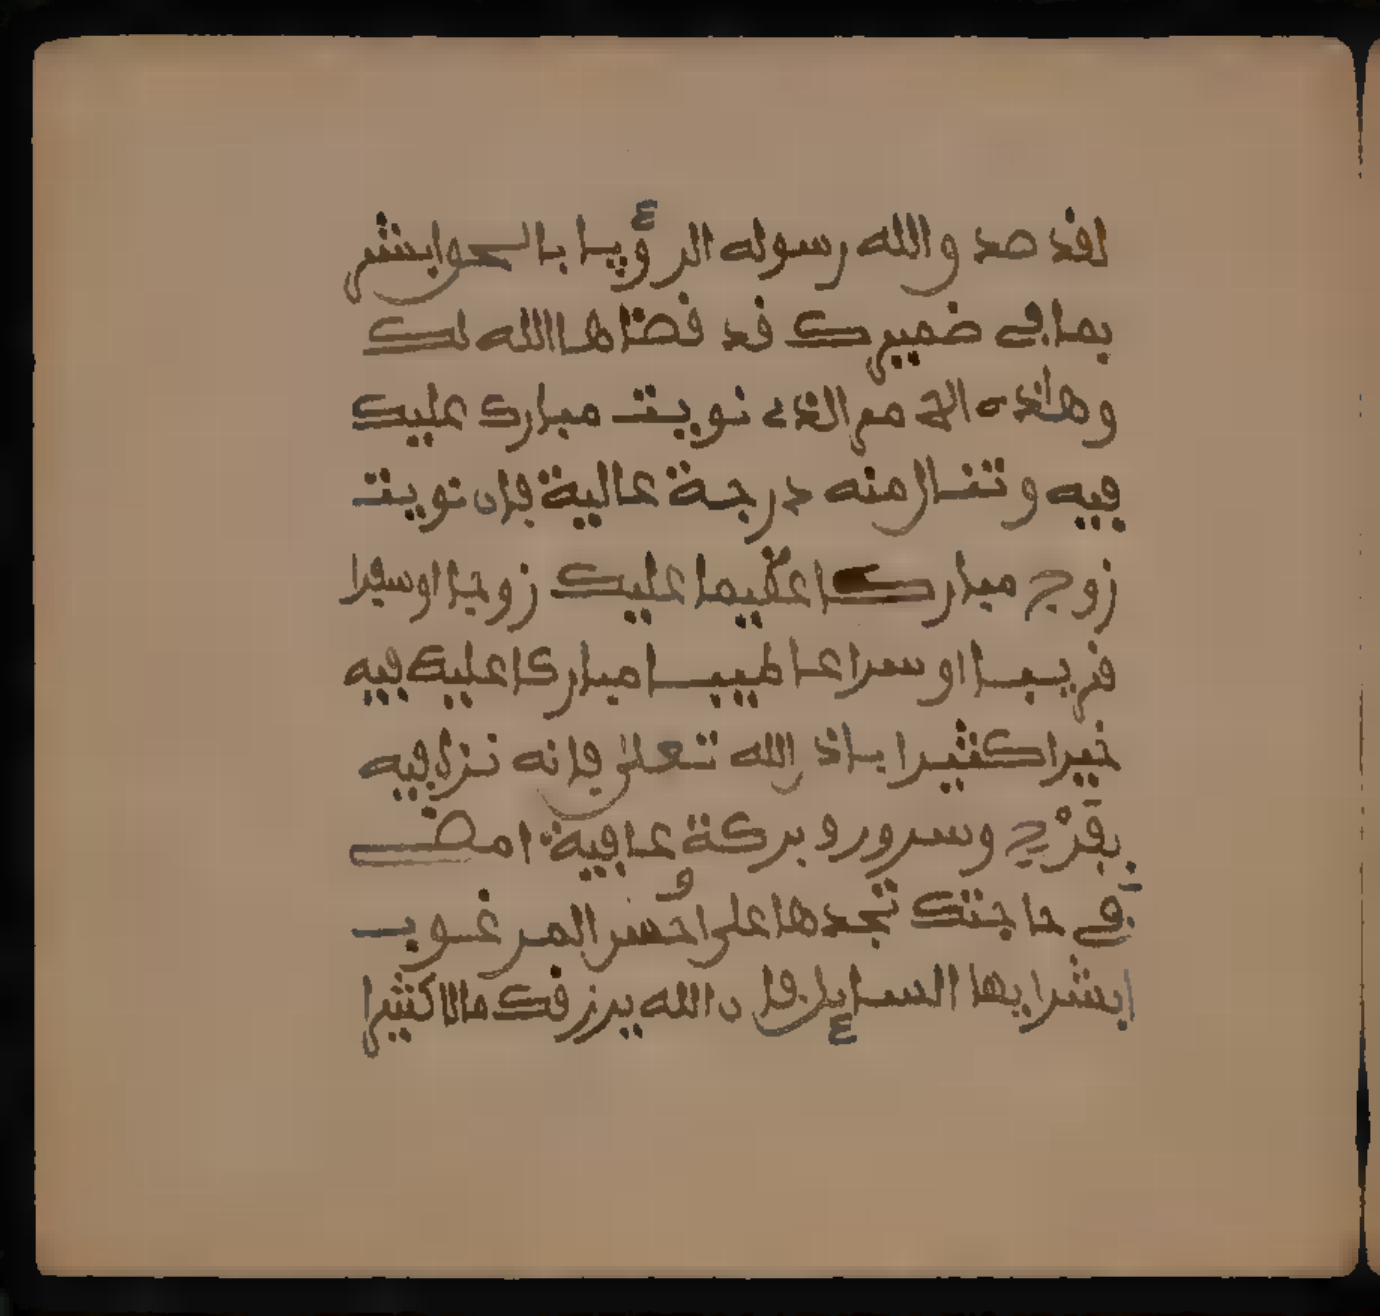 لقد صدق الله رسوله الرءيا بالحق ابشر
بما في ضميرك قد قضاها الله لك
وهاذه الذي نويت مبارك عليك
فيه وتنال منه درجة عالية فان نويت
زوج مباركا عظيما عليك زوجا او سفرا
قريبا او سراعا طيبا مباركا عليك فيه
خيرا كثيرا باذن الله تعلى فانه نزل فيه
بفرح وسرور و بركة عافية امض
في حاجتك تجدها على احسن المرغوب
ابشر ايها السايل فان الله يرزقك مالا كثيرا